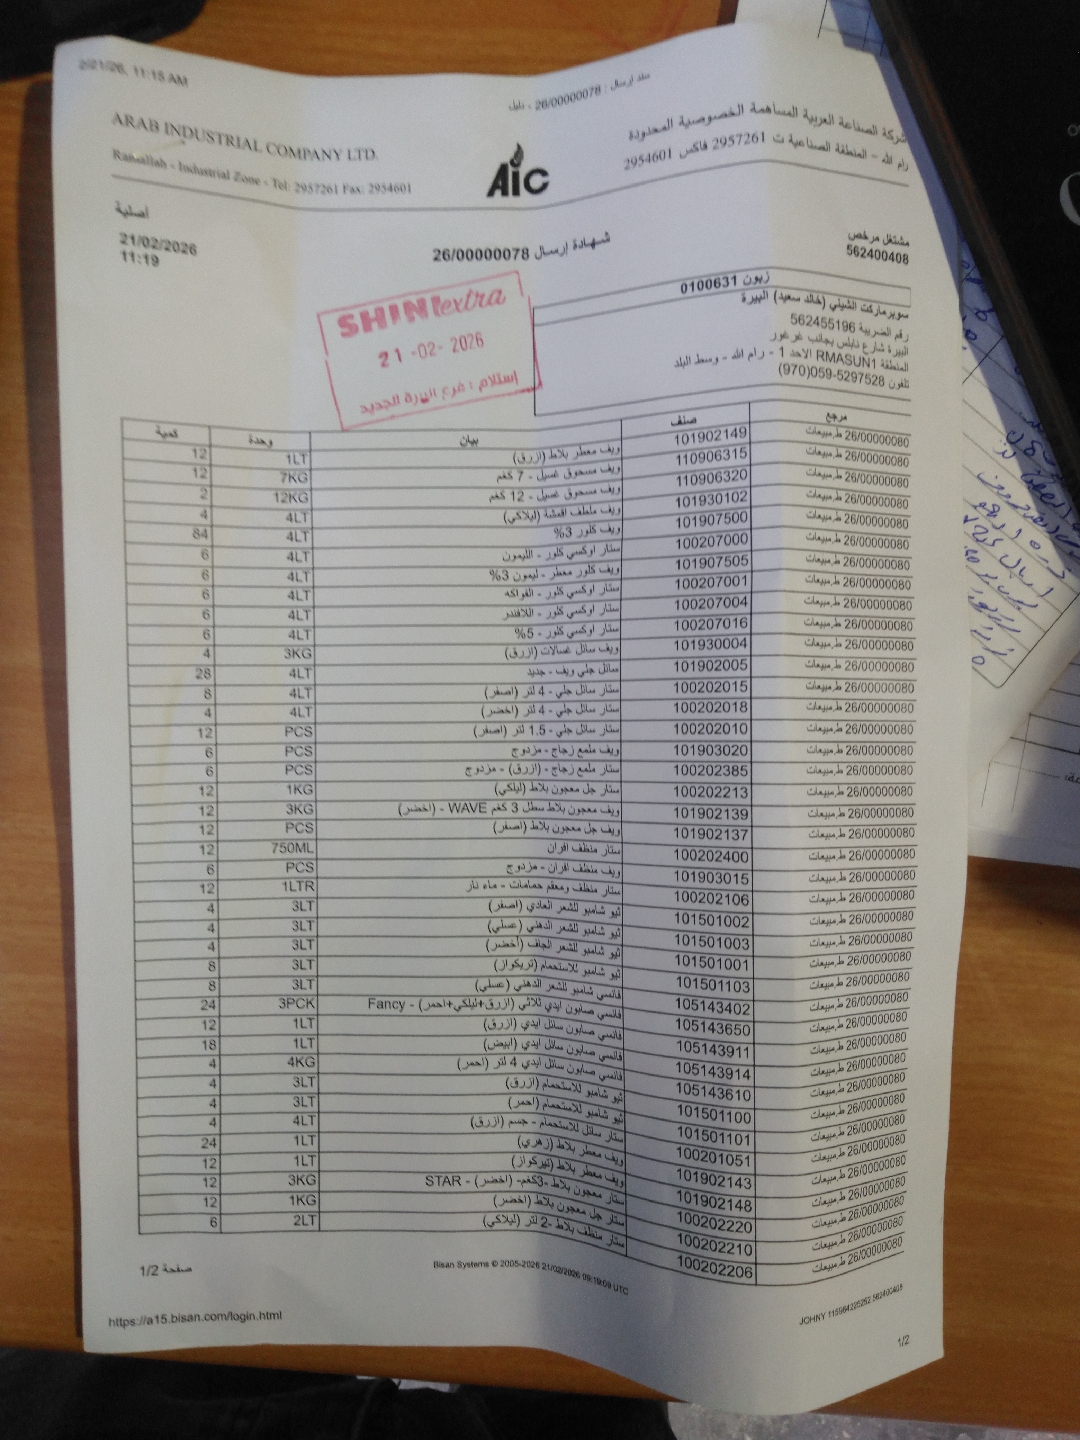 2/21/26, 11:15 AM
سند ارسال : 26/00000078 - نابل
ARAB INDUSTRIAL COMPANY LTD.
Ramallah - Industrial Zone - Tel: 2957261 Fax: 2954601
AIC
شركة الصناعة العربية المساهمة الخصوصية المحدودة
رام الله - المنطقة الصناعية ت 2957261 فاكس 2954601
اصلية
21/02/2026
11:19
شهادة إرسال 26/00000078
مشتغل مرخص
562400408
SHINI extra
21-02-2026
إستلام : فرع البيرة الجديد
زبون 0100631
سوبرماركت الشيني (خالد سعيد) البيرة
رقم الضريبة 562455196
البيرة شارع نابلس بجانب غرغور
المنطقة RMASUN1 الاحد 1 - رام الله - وسط البلد
تلفون 059-5297528(970)
مرجع صنف بيان وحدة كمية
26/00000080 ط.مبيعات 101902149 ويف معطر بلاط (ازرق) 1LT 12
26/00000080 ط.مبيعات 110906315 ويف مسحوق غسيل - 7 كغم 7KG 12
26/00000080 ط.مبيعات 110906320 ويف مسحوق غسيل - 12 كغم 12KG 2
26/00000080 ط.مبيعات 101930102 ويف ملطف اقمشة (ليلاكي) 4LT 4
26/00000080 ط.مبيعات 101907500 ويف كلور 3% 4LT 84
26/00000080 ط.مبيعات 100207000 ستار اوكسي كلور - الليمون 4LT 6
26/00000080 ط.مبيعات 101907505 ويف كلور معطر - ليمون 3% 4LT 6
26/00000080 ط.مبيعات 100207001 ستار اوكسي كلور - الفواكه 4LT 6
26/00000080 ط.مبيعات 100207004 ستار اوكسي كلور - اللافندر 4LT 6
26/00000080 ط.مبيعات 100207016 ستار اوكسي كلور - 5% 4LT 6
26/00000080 ط.مبيعات 101930004 ويف سائل غسالات (ازرق) 3KG 4
26/00000080 ط.مبيعات 101902005 سائل جلي ويف - جديد 4LT 28
26/00000080 ط.مبيعات 100202015 ستار سائل جلي - 4 لتر (اصفر) 4LT 8
26/00000080 ط.مبيعات 100202018 ستار سائل جلي - 4 لتر (اخضر) 4LT 4
26/00000080 ط.مبيعات 100202010 ستار سائل جلي - 1.5 لتر (اصفر) PCS 12
26/00000080 ط.مبيعات 101903020 ويف ملمع زجاج - مزدوج PCS 6
26/00000080 ط.مبيعات 100202385 ستار ملمع زجاج - (ازرق) - مزدوج PCS 6
26/00000080 ط.مبيعات 100202213 ستار جل معجون بلاط (ليلكي) 1KG 12
26/00000080 ط.مبيعات 101902139 ويف معجون بلاط سطل 3 كغم WAVE - (اخضر) 3KG 12
26/00000080 ط.مبيعات 101902137 ويف جل معجون بلاط (اصفر) PCS 12
26/00000080 ط.مبيعات 100202400 ستار منظف افران 750ML 12
26/00000080 ط.مبيعات 101903015 ويف منظف افران - مزدوج PCS 6
26/00000080 ط.مبيعات 100202106 ستار منظف ومعقم حمامات - ماء نار 1LTR 12
26/00000080 ط.مبيعات 101501002 نيو شامبو للشعر العادي (اصفر) 3LT 4
26/00000080 ط.مبيعات 101501003 نيو شامبو للشعر الدهني (عسلي) 3LT 4
26/00000080 ط.مبيعات 101501001 نيو شامبو للشعر الجاف (أخضر) 3LT 4
26/00000080 ط.مبيعات 101501103 نيو شامبو للاستحمام (تريكواز) 3LT 8
26/00000080 ط.مبيعات 105143402 فانسي شامبو للشعر الدهني (عسلي) 3LT 8
26/00000080 ط.مبيعات 105143650 فانسي صابون ايدي ثلاثي (ازرق+ليلكي+احمر) - Fancy 3PCK 24
26/00000080 ط.مبيعات 105143911 فانسي صابون سائل ايدي (ازرق) 1LT 12
26/00000080 ط.مبيعات 105143914 فانسي صابون سائل ايدي (ابيض) 1LT 18
26/00000080 ط.مبيعات 105143610 فانسي صابون سائل ايدي 4 لتر (احمر) 4KG 4
26/00000080 ط.مبيعات 101501100 نيو شامبو للاستحمام (ازرق) 3LT 4
26/00000080 ط.مبيعات 101501101 نيو شامبو للاستحمام (احمر) 3LT 4
26/00000080 ط.مبيعات 100201051 ستار سائل للاستحمام - جسم (ازرق) 4LT 4
26/00000080 ط.مبيعات 101902143 ويف معطر بلاط (زهري) 1LT 24
26/00000080 ط.مبيعات 101902148 ويف معطر بلاط (تيركواز) 1LT 12
26/00000080 ط.مبيعات 100202220 ستار معجون بلاط -3كغم- (اخضر) - STAR 3KG 12
26/00000080 ط.مبيعات 100202210 ستار جل معجون بلاط (اخضر) 1KG 12
26/00000080 ط.مبيعات 100202206 ستار منظف بلاط -2 لتر (ليلاكي) 2LT 6
صفحة 1/2
Bisan Systems © 2005-2026 21/02/2026 09:19:09 UTC
JOHNY 115964225252 562400408
https://a15.bisan.com/login.html
1/2